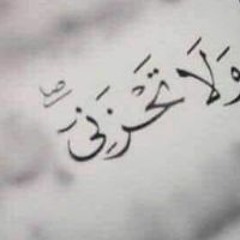 وَلَا تَحْزَنِى ۖ